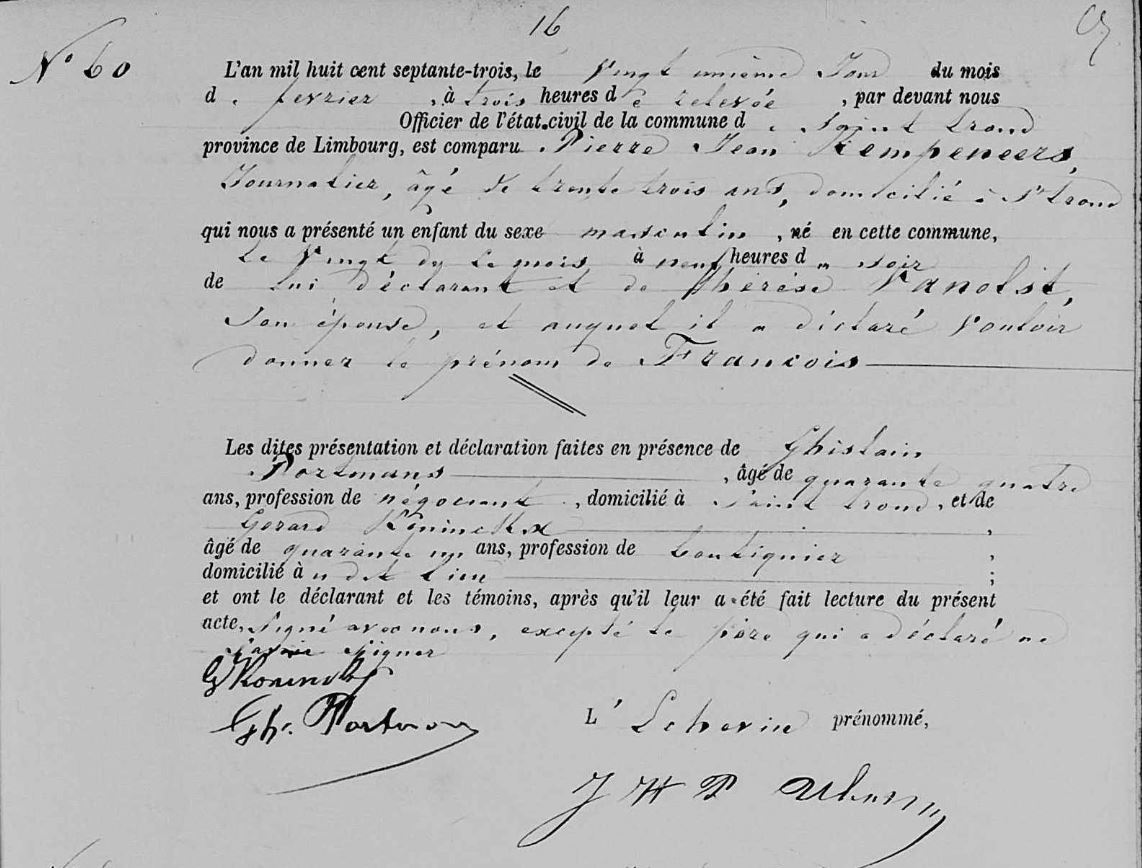 16
N° 60
L'an mil huit cent septante-trois, le Vingt unième Jour du mois
d. fevrier, à trois heures de relevée, par devant nous
Officier de l'état civil de la commune d. Saint trond
province de Limbourg, est comparu Pierre Jean Kempeneers,
Journalier, âgé de trente trois ans, domicilié à St trond
qui nous a présenté un enfant du sexe masculin, né en cette commune,
le Vingt du ce mois à neuf heures du soir
de lui déclarant et de thérèse Vanolst,
Son épouse, et auquel il a déclaré Vouloir
donner le prénom de Francois
Les dites présentation et déclaration faites en présence de Ghislain
Portmans, âgé de quarante quatre
ans, profession de négociant, domicilié à Saint trond, et de
Gerard Koninckx,
âgé de quarante un ans, profession de boutiquier,
domicilié à u dit lieu;
et ont le déclarant et les témoins, après qu'il leur a été fait lecture du présent
acte, Signé avec nous, excepté le père qui a déclaré ne
savoir signer
G Koninckx
Gh. Portmans
L' Echevin prénommé,
J H P